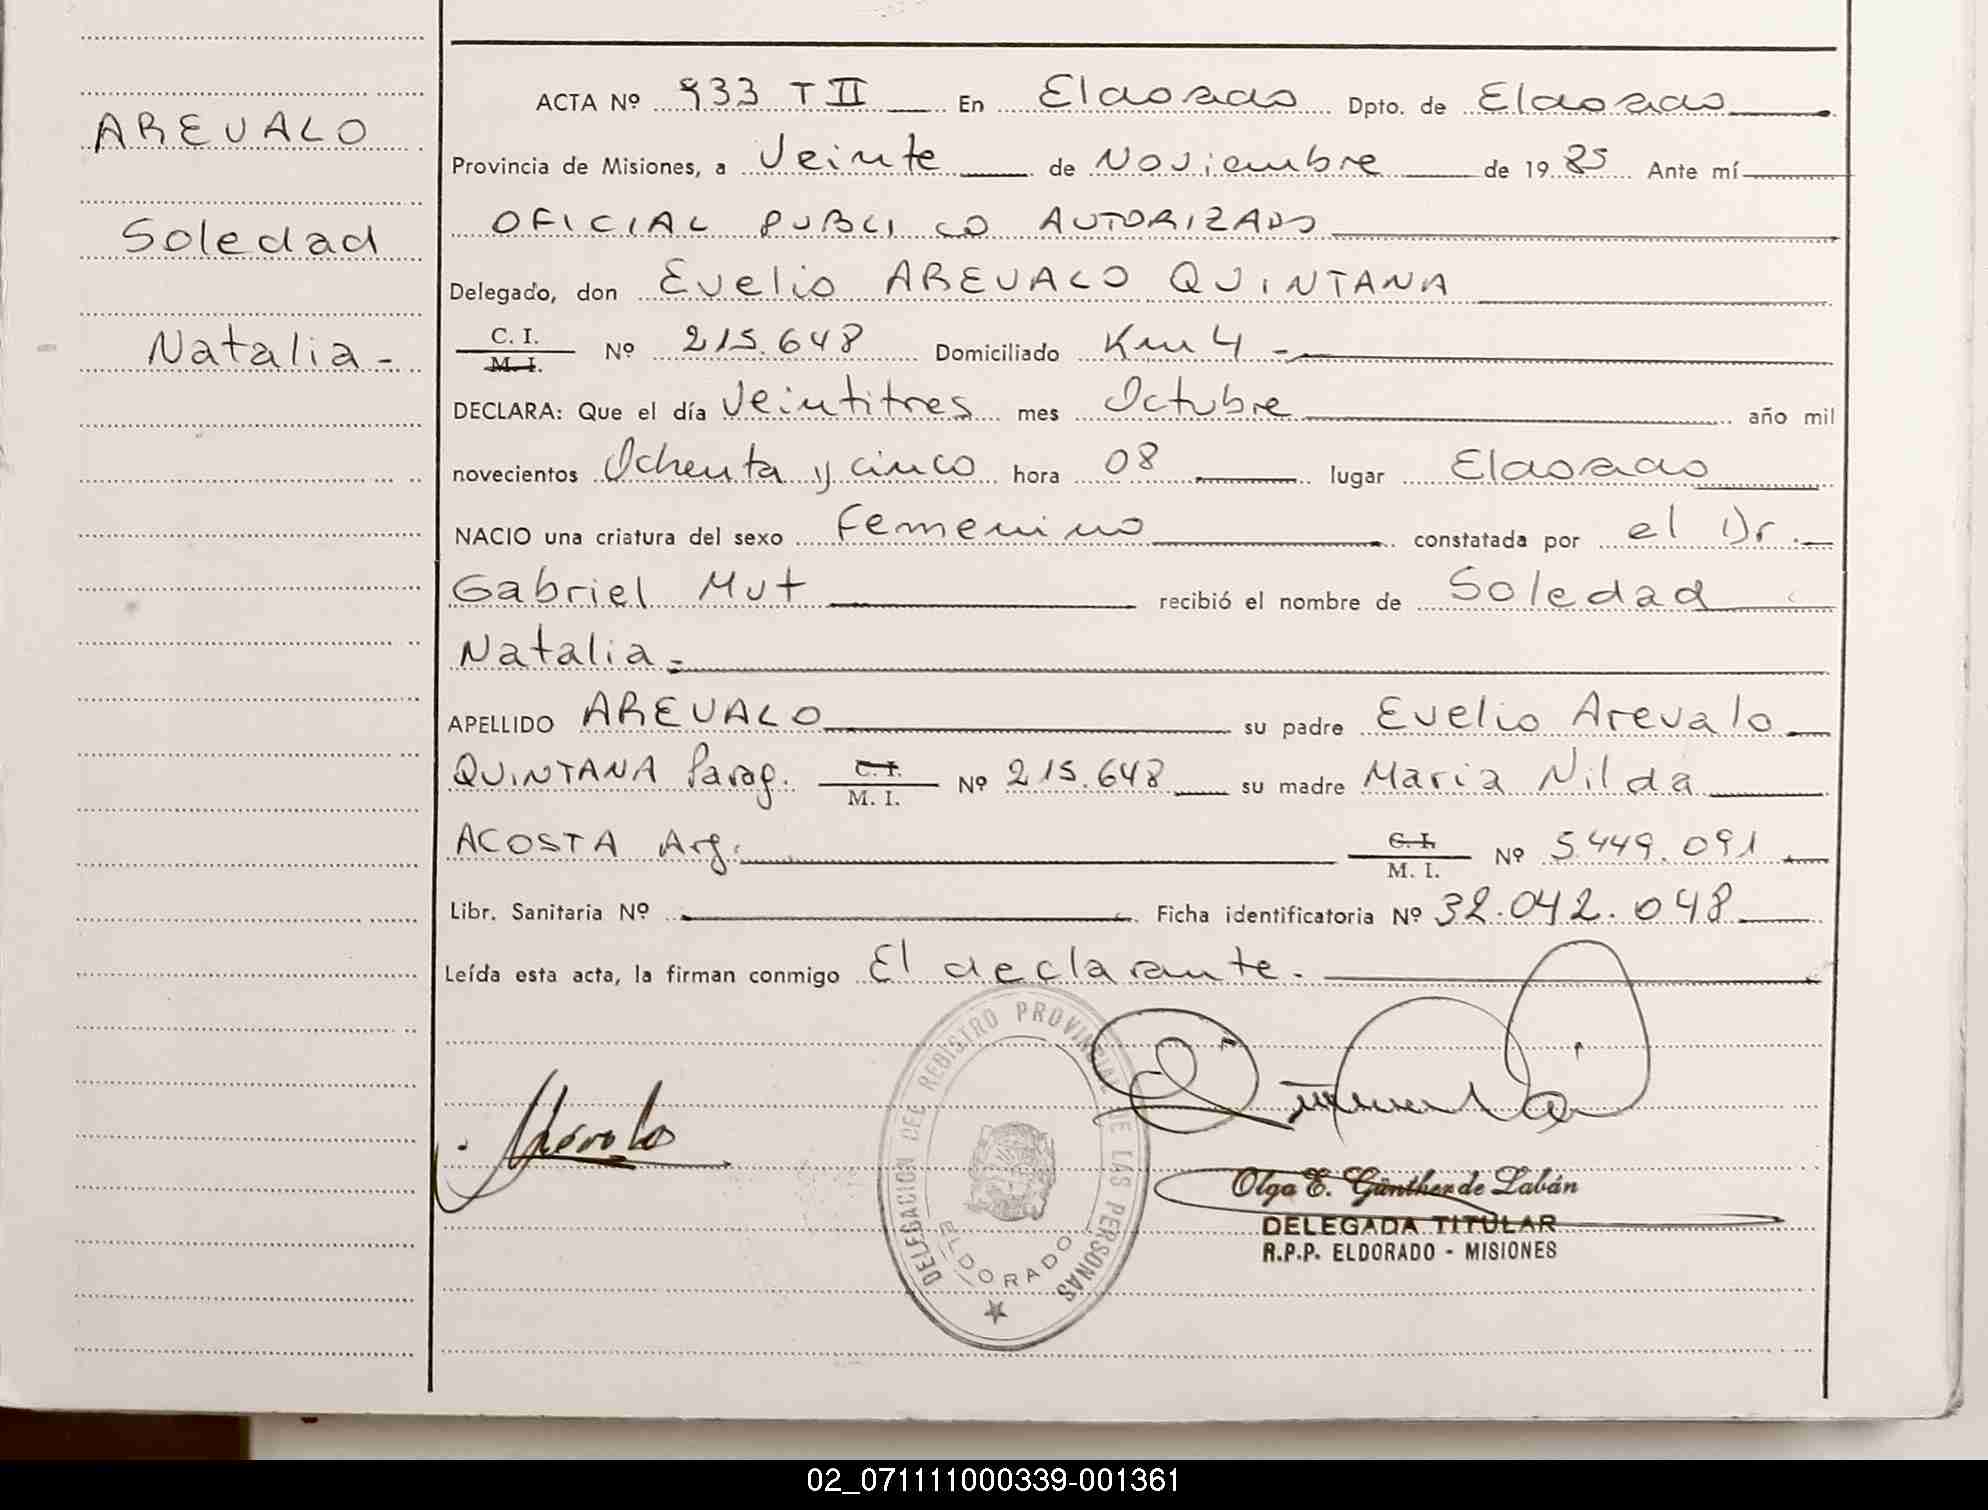 AREVALO
Soledad
Natalia -
ACTA Nº 933 T II En Eldorado Dpto. de Eldorado
Provincia de Misiones, a Veinte de Noviembre de 1985 Ante mí
OFICIAL PUBLICO AUTORIZADO
Delegado, don Evelio AREVALO QUINTANA
C. I.
M. I. Nº 215.648 Domiciliado Km 4 -
DECLARA: Que el día Veintitres mes Octubre año mil
novecientos Ochenta y cinco hora 08 lugar Eldorado
NACIO una criatura del sexo Femenino constatada por el Dr.
Gabriel Mut recibió el nombre de Soledad
Natalia -
APELLIDO AREVALO su padre Evelio Arevalo
QUINTANA Parag. C. I.
M. I. Nº 215.648 su madre Maria Nilda
ACOSTA Arg. C. I.
M. I. Nº 5.449.091
Libr. Sanitaria Nº Ficha identificatoria Nº 32.042.048
Leída esta acta, la firman conmigo El declarante.
DELEGACION DEL REGISTRO PROVINCIAL DE LAS PERSONAS
ELDORADO
Arévalos
Olga E. Günther de Labán
DELEGADA TITULAR
R.P.P. ELDORADO - MISIONES
02_071111000339-001361